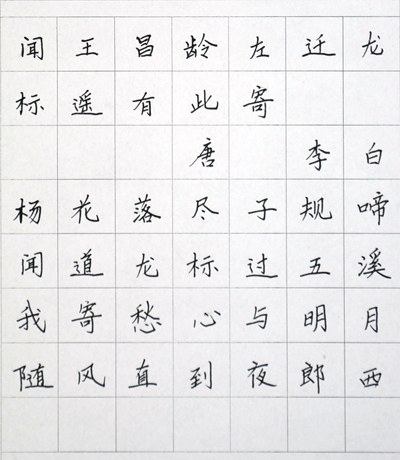 闻王昌龄左迁龙
标遥有此寄
唐 李白
杨花落尽子规啼
闻道龙标过五溪
我寄愁心与明月
随风直到夜郎西